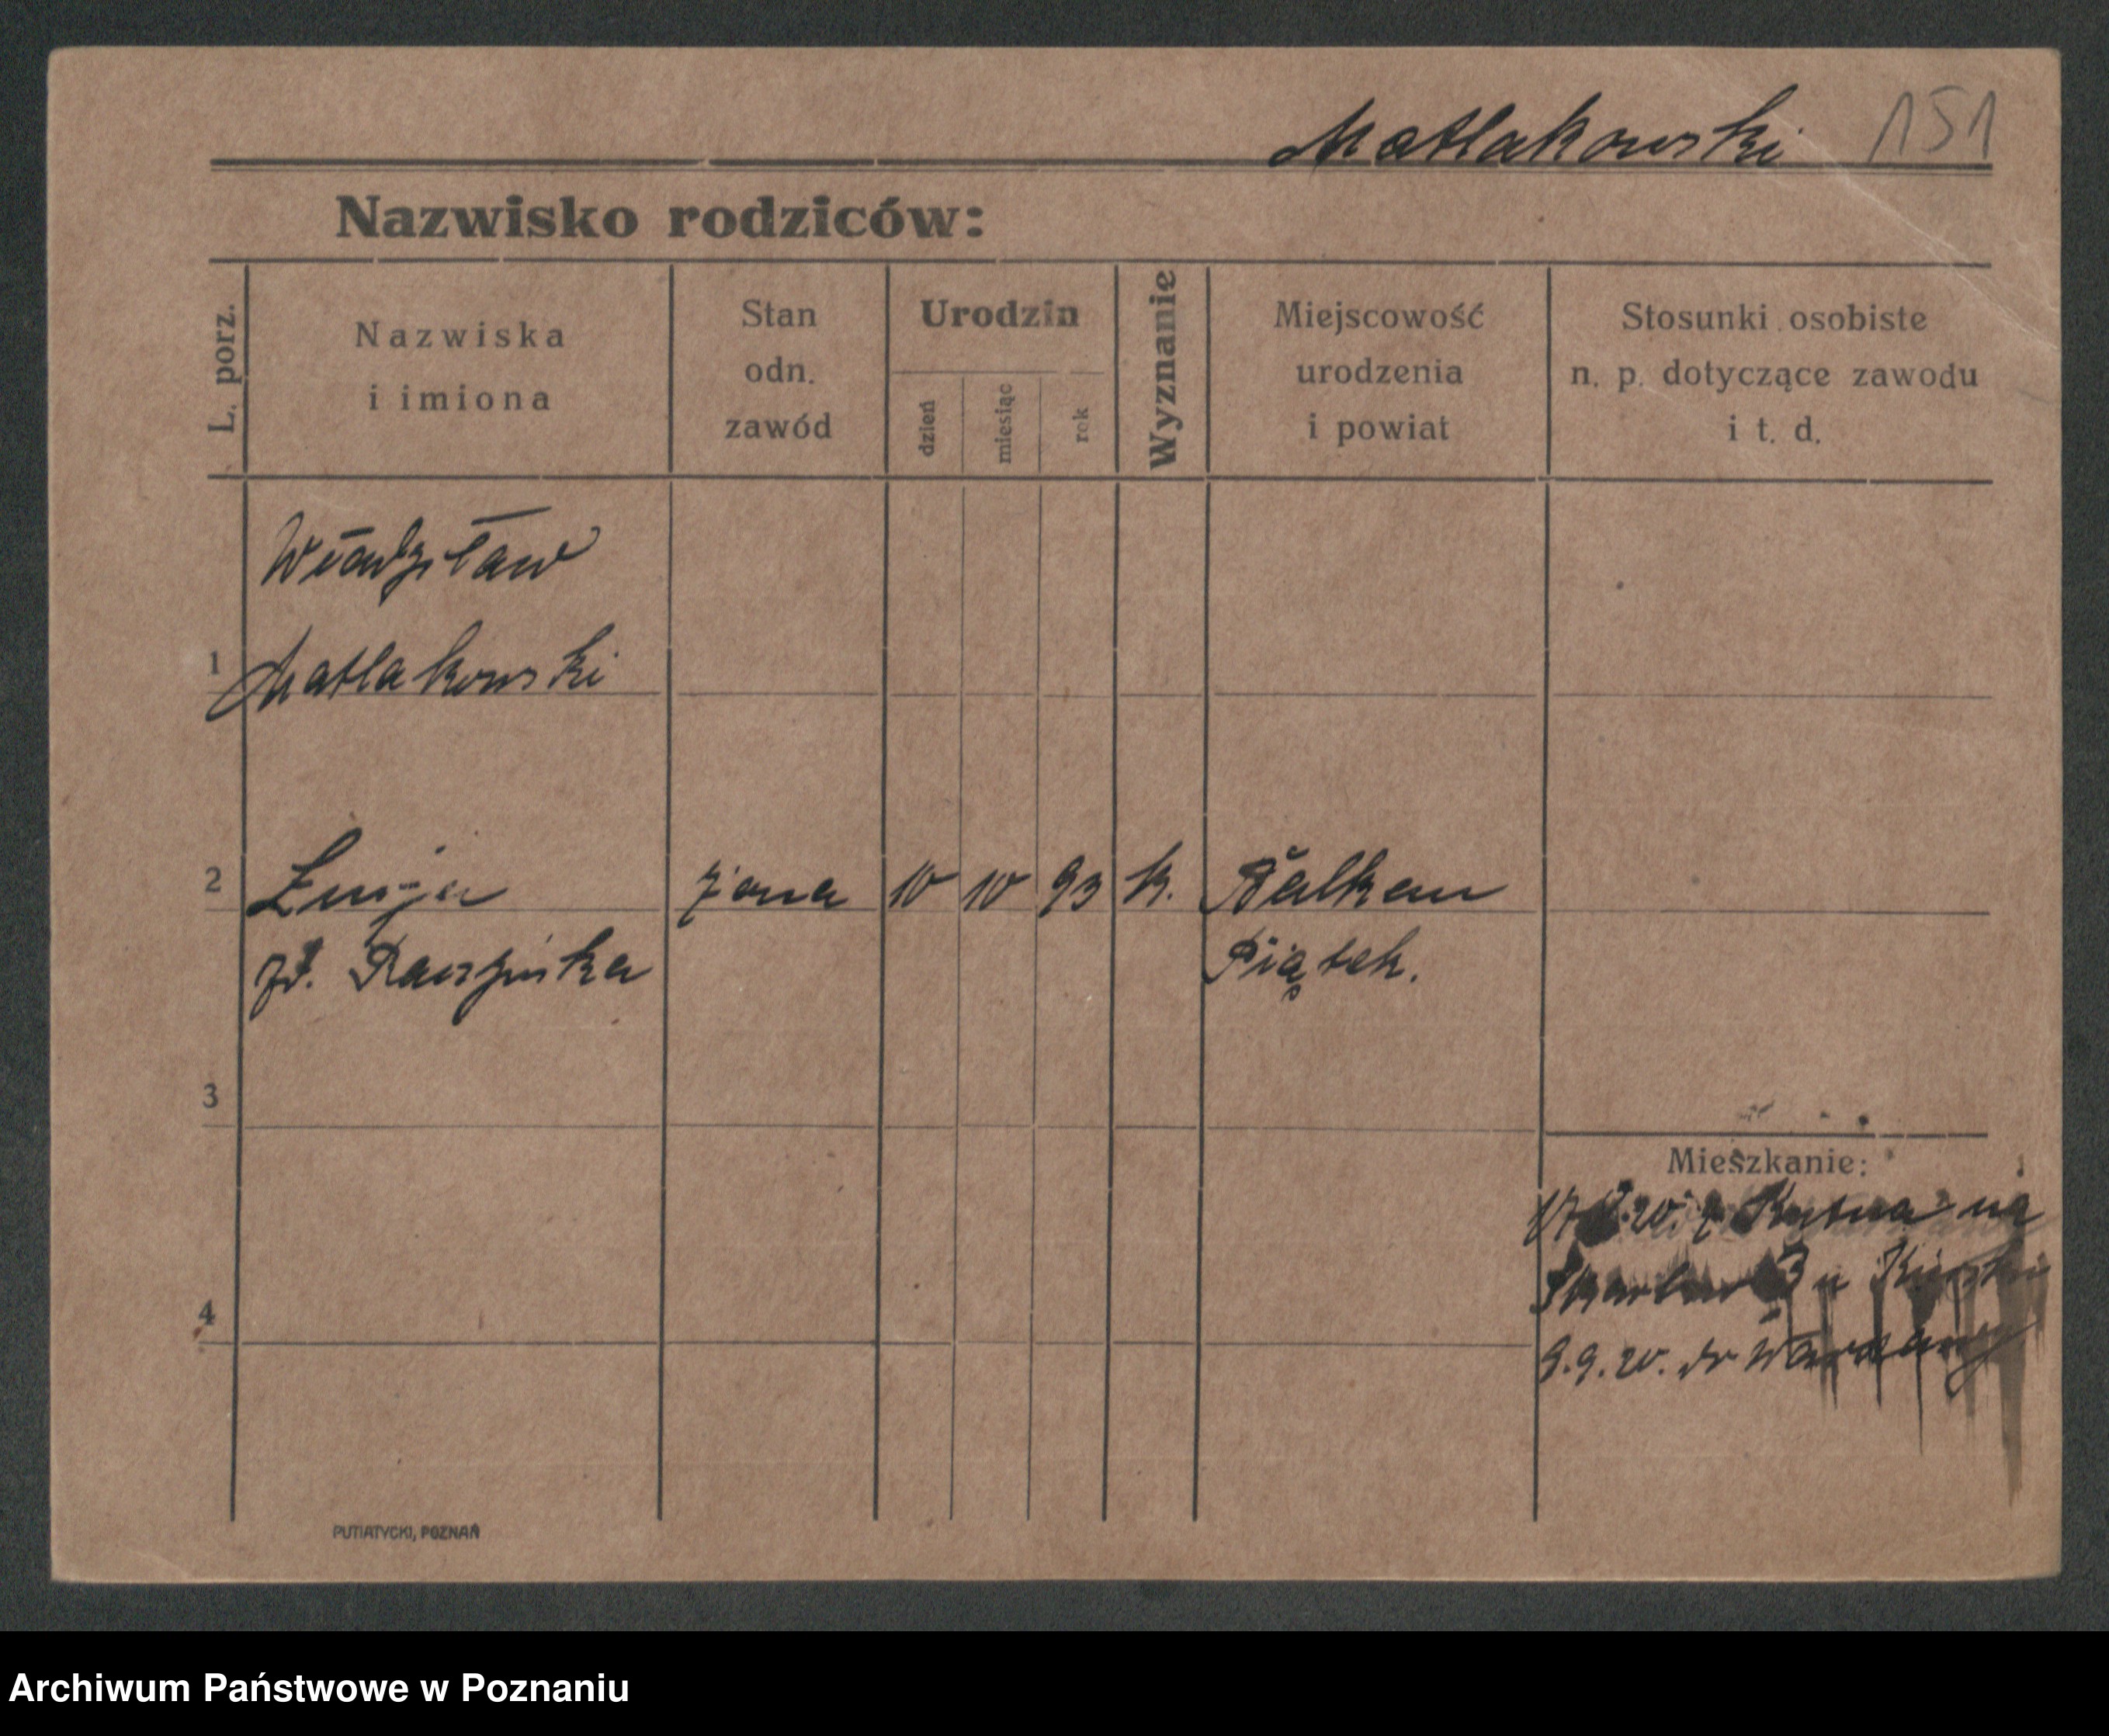 Matlakowski 151
Nazwisko rodziców:
L. porz.
Nazwiska
i imiona
Stan
odn.
zawód
Urodzin
dzień
miesiąc
rok
Wyznanie
Miejscowość
urodzenia
i powiat
Stosunki osobiste
n. p. dotyczące zawodu
i t. d.
Władysław
1 Matlakowski
2 żona 10 10 93 k. Bałkan
Piątek.
3
Mieszkanie:
20. z Kutna na
3 u
4
9.9.20. do Warszawy
PUTIATYCKI, POZNAŃ
Archiwum Państwowe w Poznaniu